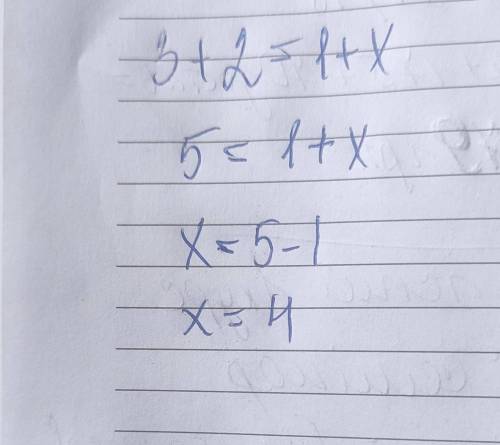 3+2=1+x
5=1+x
x=5-1
x=4